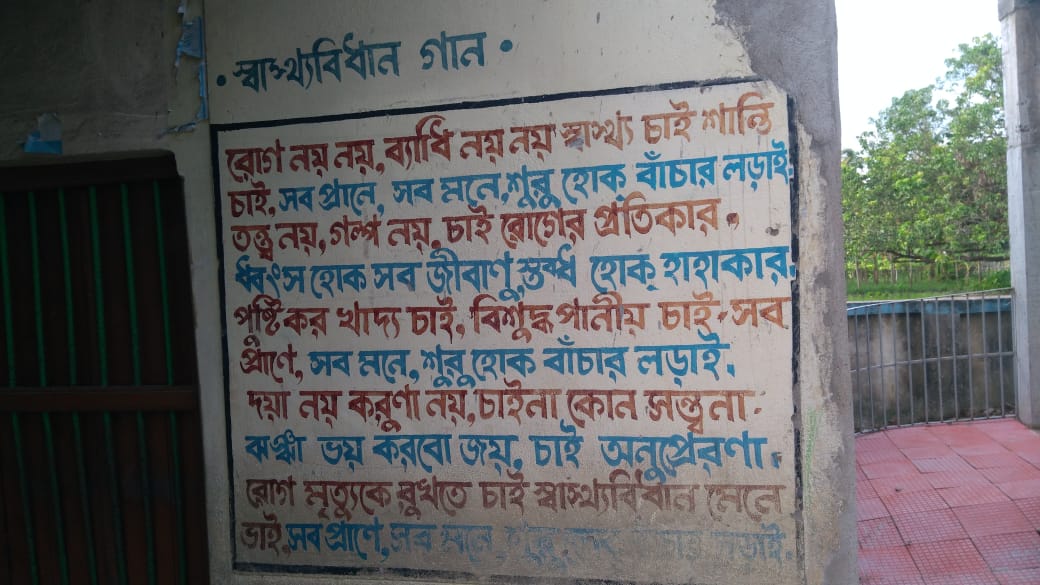 • স্বাস্থ্যবিধান গান •
রোগ নয় নয়, ব্যাধি নয় নয় স্বাস্থ্য চাই শান্তি
চাই, সব প্রানে, সব মনে, শুরু হোক বাঁচার লড়াই।
তন্ত্র নয়, গল্প নয়, চাই রোগের প্রতিকার।
ধ্বংস হোক সব জীবাণু স্তব্ধ হোক হাহাকার।
পুষ্টিকর খাদ্য চাই, বিশুদ্ধ পানীয় চাই-সব
প্রাণে, সব মনে, শুরু হোক বাঁচার লড়াই।
দয়া নয় করুণা নয়, চাইনা কোন সন্ত্বনা-
ঝঞ্ঝা ভয় করবো জয়, চাই অনুপ্রেরণা।
রোগ মৃত্যুকে রুখতে চাই স্বাস্থ্যবিধান মেনে
ভাই, সব প্রাণে, সব মনে, শুরু হোক বাঁচার লড়াই।